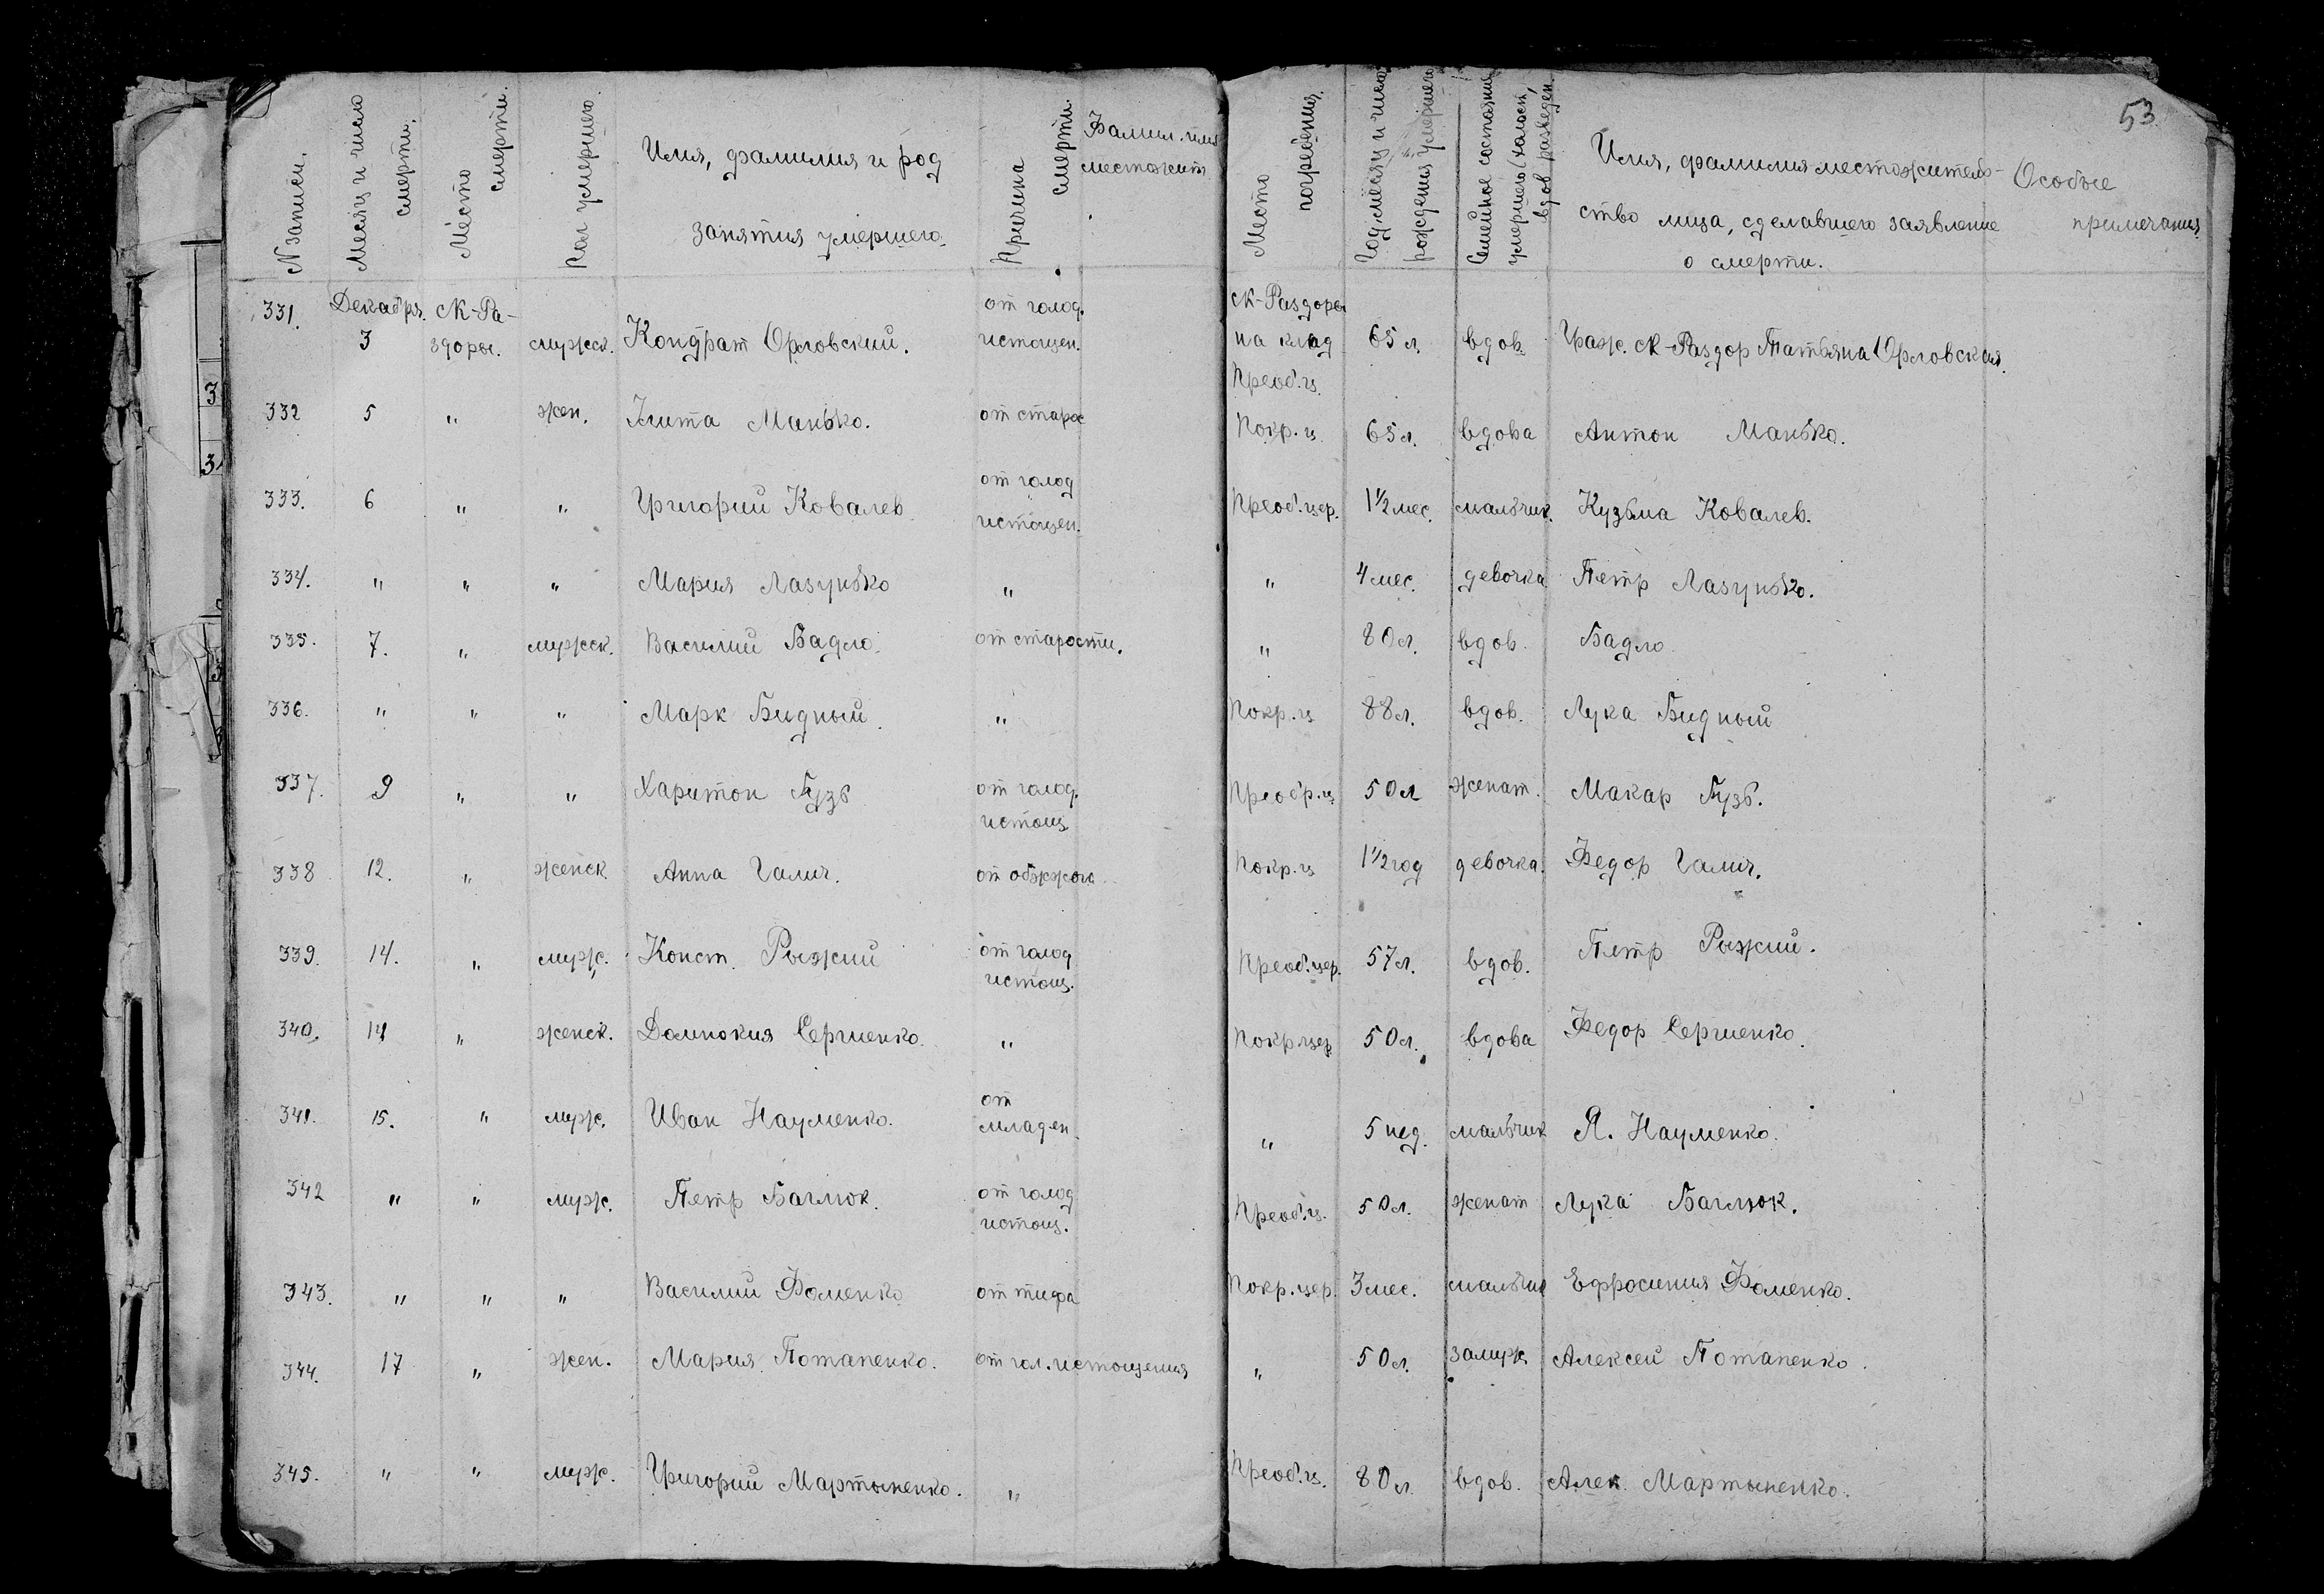 53
№ записи. Месяц и число смерти. Место смерти. Пол умершего. Имя, фамилия и род занятия умершего. Причина смерти. Фамил. имя местожит. Место погребения. Год, месяц и число рождения умершего Семейное состояние умершего (холост, вдов разведен. Имя, фамилия местожитель-ство лица, сделавшего заявление о смерти. Особые примечания
331. Декабря 3 М-Ра-здоры. мужск. Кондрат Орловский. от голод. истощен. М-Раздоры на клад Преоб.ц. 65 л. вдов. Граж. М-Раздор Татьяна Орловская.
332 5 " жен. Улита Манько. от старос Покр. ц. 65 л. вдова Антон Манько.
333. 6 " " Григорий Ковалев. от голод истощен. Преоб. цер. 1 1/2 мес. мальчик. Кузьма Ковалев.
334. " " " Мария Лазунько " " 4 мес. девочка Петр Лазунько.
335. 7. " мужск. Василий Бадло. от старости. " 80 л. вдов. Бадло
336. " " " Марк Бидный. " Покр. ц 88 л. вдов. Лука Бидный
337. 9 " " Харитон Гузь от голод. истощ Преобр. ц 50 л женат. Макар Гузь.
338 12. " женск Анна Галич. от обжжога Покр. ц 1 1/2 год девочка. Федор Галич.
339. 14. " мужс. Конст. Рыжий от голод истощ. Преоб. цер. 57 л. вдов. Петр Рыжий.
340. 14 " женск. Домнокия Сергиенко. " Покр цер 50 л. вдова Федор Сергиенко.
341. 15. " муж. Иван Науменко. от младен. " 5 нед. мальчик Я. Науменко.
342 " " муж. Петр Баглюк. от голод истощ. Преоб. ц. 50 л. женат Лука Баглюк.
343. " " " Василий Фоменко от тифа Покр. цер. 3 мес. мальчик Ефросиния Фоменко.
344. 17 " жен. Мария Потапенко. от гол. истощения " 50 л. замуж Алексей Потапенко.
345. " " муж. Григорий Мартыненко. " Преоб. ц. 80 л. вдов. Алек. Мартыненко.